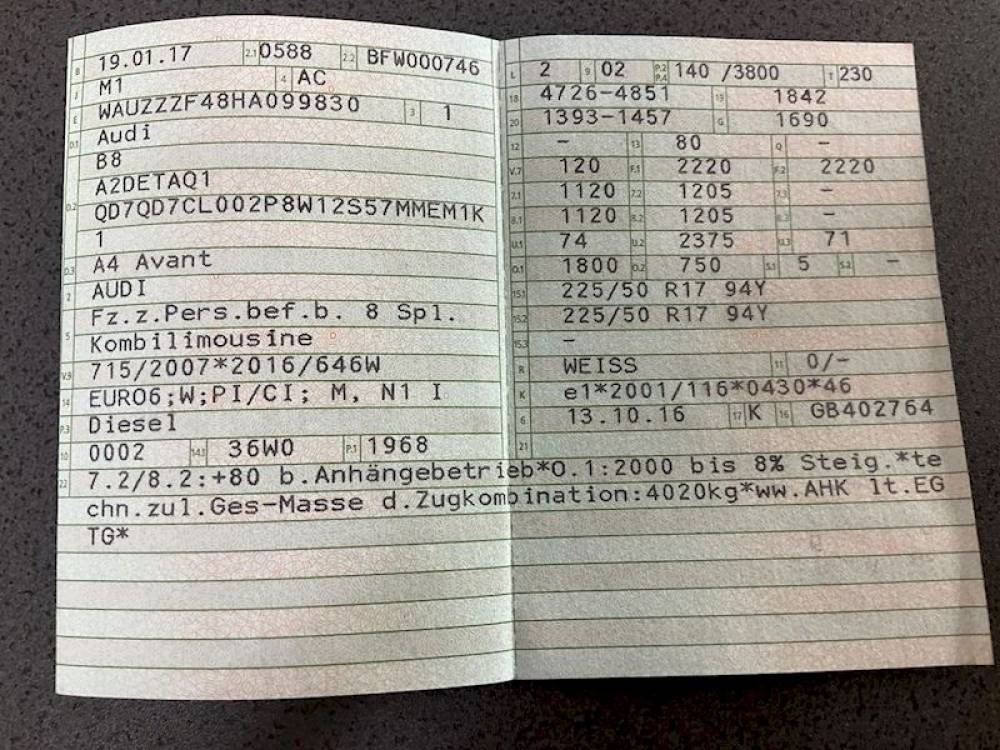 B 19.01.17 2.1 0588 2.2 BFW000746
J M1 4 AC
E WAUZZZF48HA099830 3 1
D.1 Audi
B8
D.2 A2DETAQ1
QD7QD7CL002P8W12S57MMEM1K
1
D.3 A4 Avant
2 AUDI
Fz.z.Pers.bef.b. 8 Spl.
5 Kombilimousine
V.9 715/2007*2016/646W
14 EURO6;W;PI/CI; M, N1 I
P.3 Diesel
10 0002 14.1 36W0 P.1 1968
L 2 9 02 P.2 P.4 140 /3800 T 230
18 4726-4851 19 1842
20 1393-1457 G 1690
12 – 13 80 Q –
V.7 120 F.1 2220 F.2 2220
7.1 1120 7.2 1205 7.3 –
8.1 1120 8.2 1205 8.3 –
U.1 74 U.2 2375 U.3 71
O.1 1800 O.2 750 S.1 5 S.2 –
15.1 225/50 R17 94Y
15.2 225/50 R17 94Y
15.3 –
R WEISS 11 0/–
K e1*2001/116*0430*46
6 13.10.16 17 K 16 GB402764
21
22 7.2/8.2:+80 b.Anhängebetrieb*O.1:2000 bis 8% Steig.*te
chn.zul.Ges-Masse d.Zugkombination:4020kg*ww.AHK lt.EG
TG*